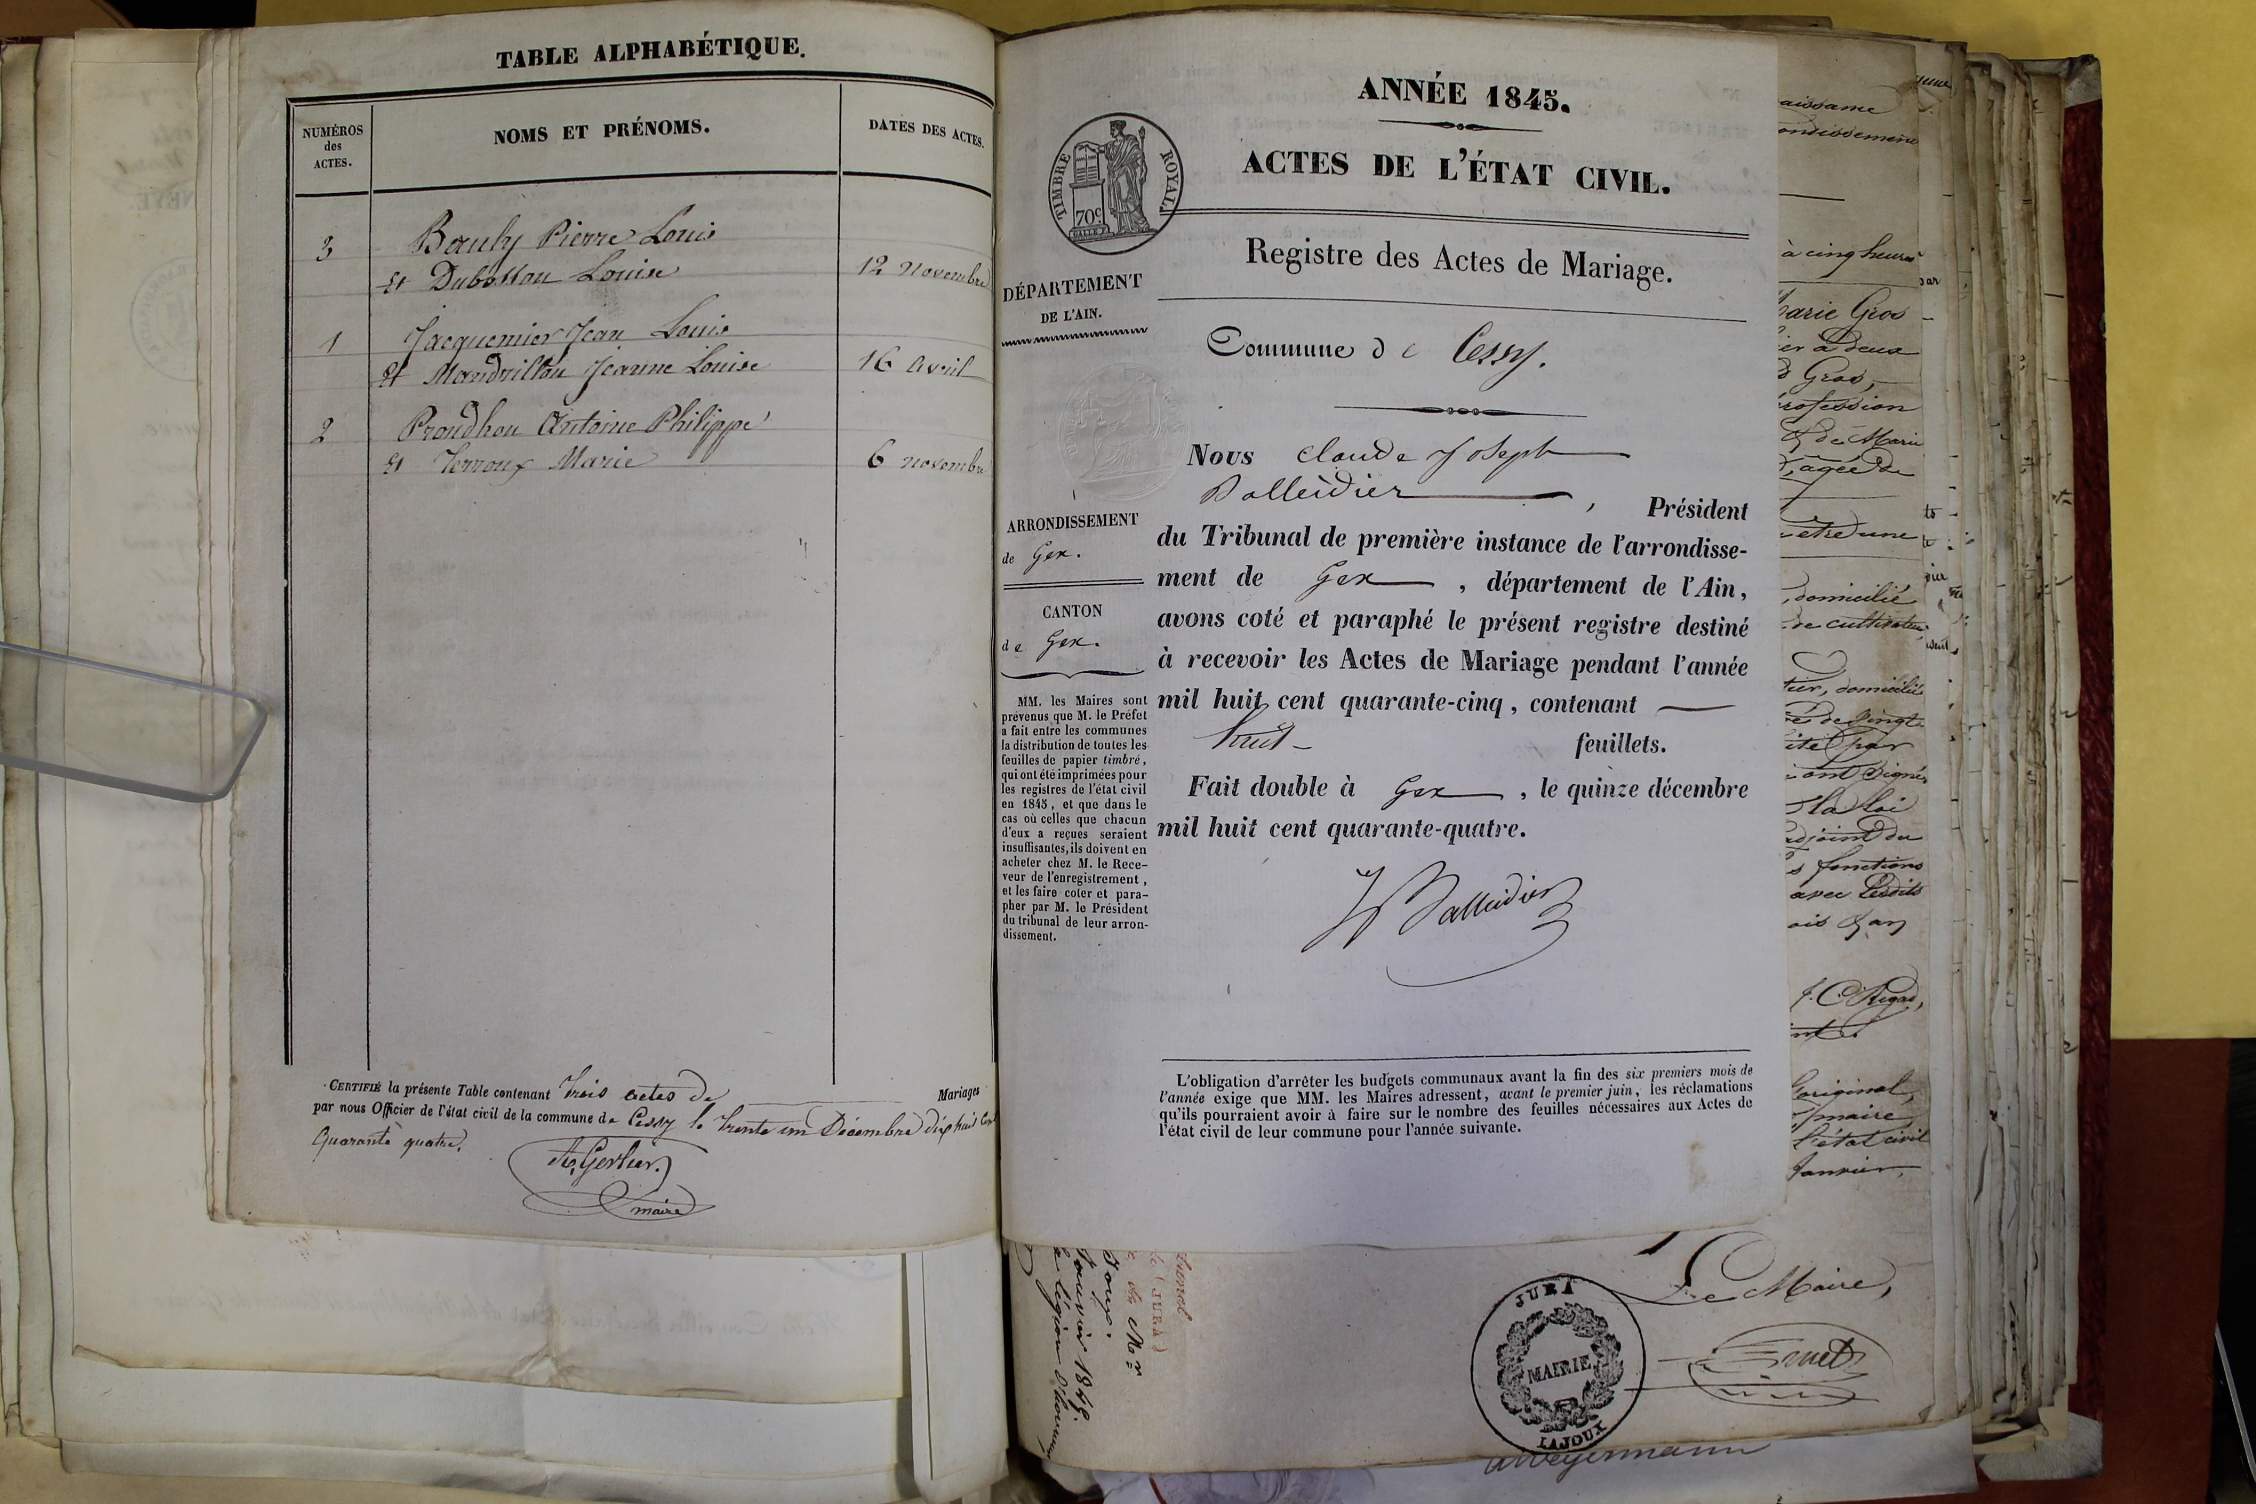 TABLE ALPHABÉTIQUE.
NUMÉROS
des
ACTES.
NOMS ET PRÉNOMS.
DATES DES ACTES.
3 Bauly Pierre Louis
et Dubottou Louise 12 novembre
1 Jacquemier Jean Louis
et Mandrillon Jeanne Louise 16 avril
2 Proudhon Antoine Philippe
et Verroux Marie 6 novembre
CERTIFIÉ la présente Table contenant trois actes de Mariages
par nous Officier de l'état civil de la commune de Cessy le trente un Décembre dix huit Cent
Quarante quatre.
Gerlier
maire
ANNÉE 1845.
ACTES DE L'ÉTAT CIVIL.
TIMBRE ROYAL
70c
Registre des Actes de Mariage.
DÉPARTEMENT
DE L'AIN.
Commune de Cessy.
ARRONDISSEMENT
de Gex.
CANTON
de Gex.
MM. les Maires sont
prévenus que M. le Préfet
a fait entre les communes
la distribution de toutes les
feuilles de papier timbré,
qui ont été imprimées pour
les registres de l'état civil
en 1845, et que dans le
cas où celles que chacun
d'eux a reçues seraient
insuffisantes, ils doivent en
acheter chez M. le Rece-
veur de l'enregistrement,
et les faire coter et para-
pher par M. le Président
du tribunal de leur arron-
dissement.
Nous Claude Joseph
Balleidier, Président
du Tribunal de première instance de l'arrondisse-
ment de Gex, département de l'Ain,
avons coté et paraphé le présent registre destiné
à recevoir les Actes de Mariage pendant l'année
mil huit cent quarante-cinq, contenant
huit feuillets.
Fait double à Gex, le quinze décembre
mil huit cent quarante-quatre.
Balleidier
L'obligation d'arrêter les budgets communaux avant la fin des six premiers mois de
l'année exige que MM. les Maires adressent, avant le premier juin, les réclamations
qu'ils pourraient avoir à faire sur le nombre des feuilles nécessaires aux Actes de
l'état civil de leur commune pour l'année suivante.
aissance
ondissement
à cinq heures
Marie Gros
ier à deux
Gros,
profession
& de Marie
, âgée de
être une
, domicilié
de cultivateur
tier, domicilié
de vingt
par
ont signé
la loi
adjoint du
fonctions
avec lesdits
ois & an
l'original,
maire
l'état civil
Janvier,
(JURA)
du Mr
Janvier 1849.
la légion d'honneur
Le Maire,
JURA
MAIRIE
LAJOUX
Weyermann